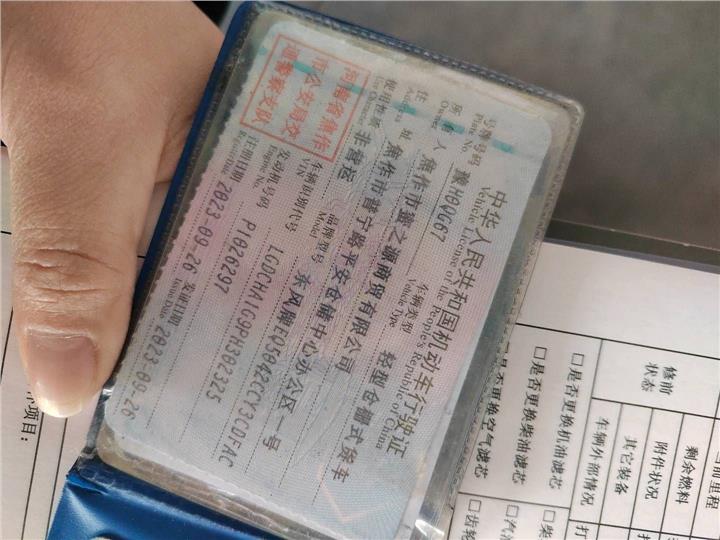 中华人民共和国机动车行驶证
Vehicle License of the People's Republic of China
号牌号码 豫H0QG67 车辆类型 轻型仓栅式货车
Plate No. Vehicle Type
所有人 焦作市
Owner
商贸有限公司
住址 焦作市普宁路平安仓储中心办公区一号
Address
使用性质 非营运 品牌型号 东风牌EQ5042CCY3CDFAC
Use Character Model
车辆识别代号 LGDCHA1G9PH302325
VIN
发动机号码 P1026297
Engine No.
注册日期 2023-09-26 发证日期 2023-09-26
Register Date Issue Date
河南省焦作
市公安局交
通警察支队
修前
状态
当前里程
剩余燃料
附件状况
其它装备
车辆外部情况
打
打
□是否更换机油滤芯
□是否更换柴油滤芯
□是否更换空气滤芯
□柴
□汽
□齿轮
项目：